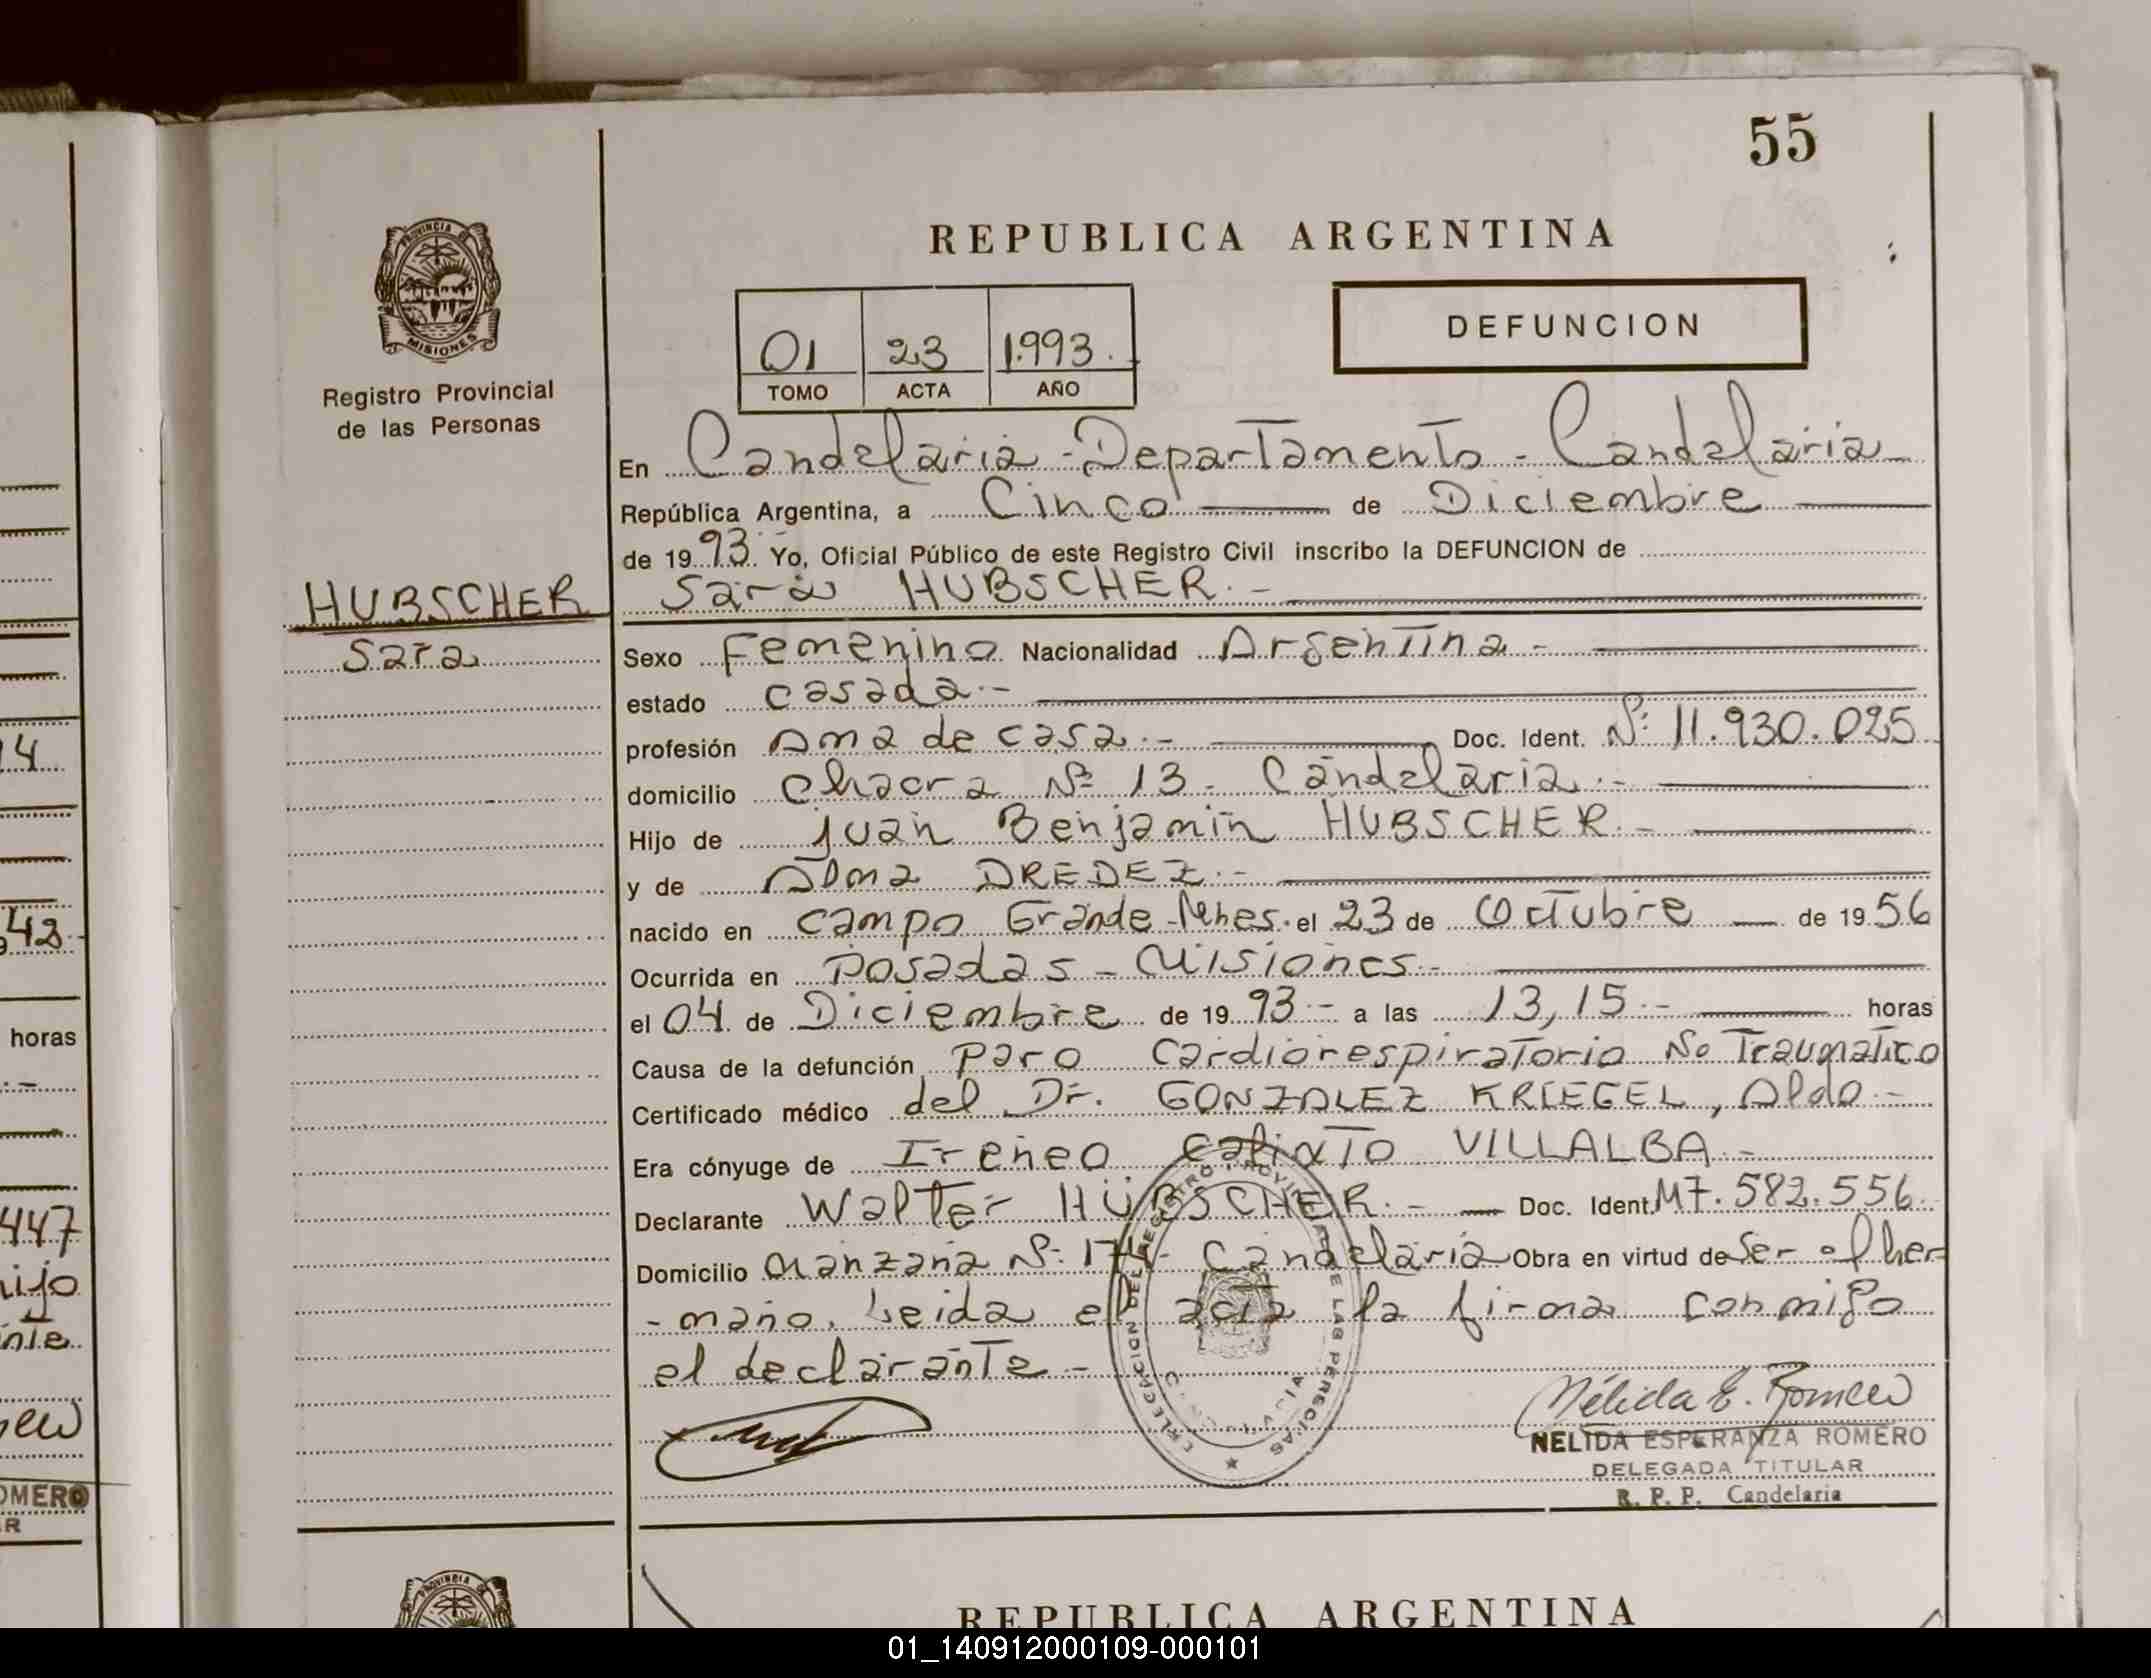 55
REPUBLICA ARGENTINA
PROVINCIA DE
MISIONES
Registro Provincial
de las Personas
01 23 1.993.
TOMO ACTA AÑO
DEFUNCION
En Candelaria - Departamento - Candelaria
República Argentina, a Cinco de Diciembre
de 19 93. Yo, Oficial Público de este Registro Civil inscribo la DEFUNCION de
HUBSCHER
Sara
Sara HUBSCHER. -
Sexo Femenino Nacionalidad Argentina -
estado casada. -
profesión Ama de casa. - Doc. Ident. Nº: 11.930.025
domicilio Chacra Nº 13 - Candelaria. -
Hijo de Juan Benjamin HUBSCHER. -
y de Alma DREDEZ. -
nacido en Campo Grande - Mnes. el 23 de Octubre de 19 56
Ocurrida en Posadas - Misiones. -
el 04 de Diciembre de 19 93. - a las 13,15. - horas
Causa de la defunción paro cardiorespiratorio No Traumatico
Certificado médico del Dr. GONZALEZ KRIEGEL, Aldo. -
Era cónyuge de Ireneo Calixto VILLALBA. -
Declarante Walter HÜBSCHER. - Doc. Ident. M7.582.556.
Domicilio Manzana Nº: 174 - Candelaria Obra en virtud de Ser el her-
- mano. Leida el acta la firma conmigo
el declarante -
Nélida E. Romero
NELIDA ESPERANZA ROMERO
DELEGADA TITULAR
R. P. P. Candelaria
4
42.-
horas
447
hijo
nte.
OMERO
R
PROVINCIA
REPUBLICA ARGENTINA
01_140912000109-000101